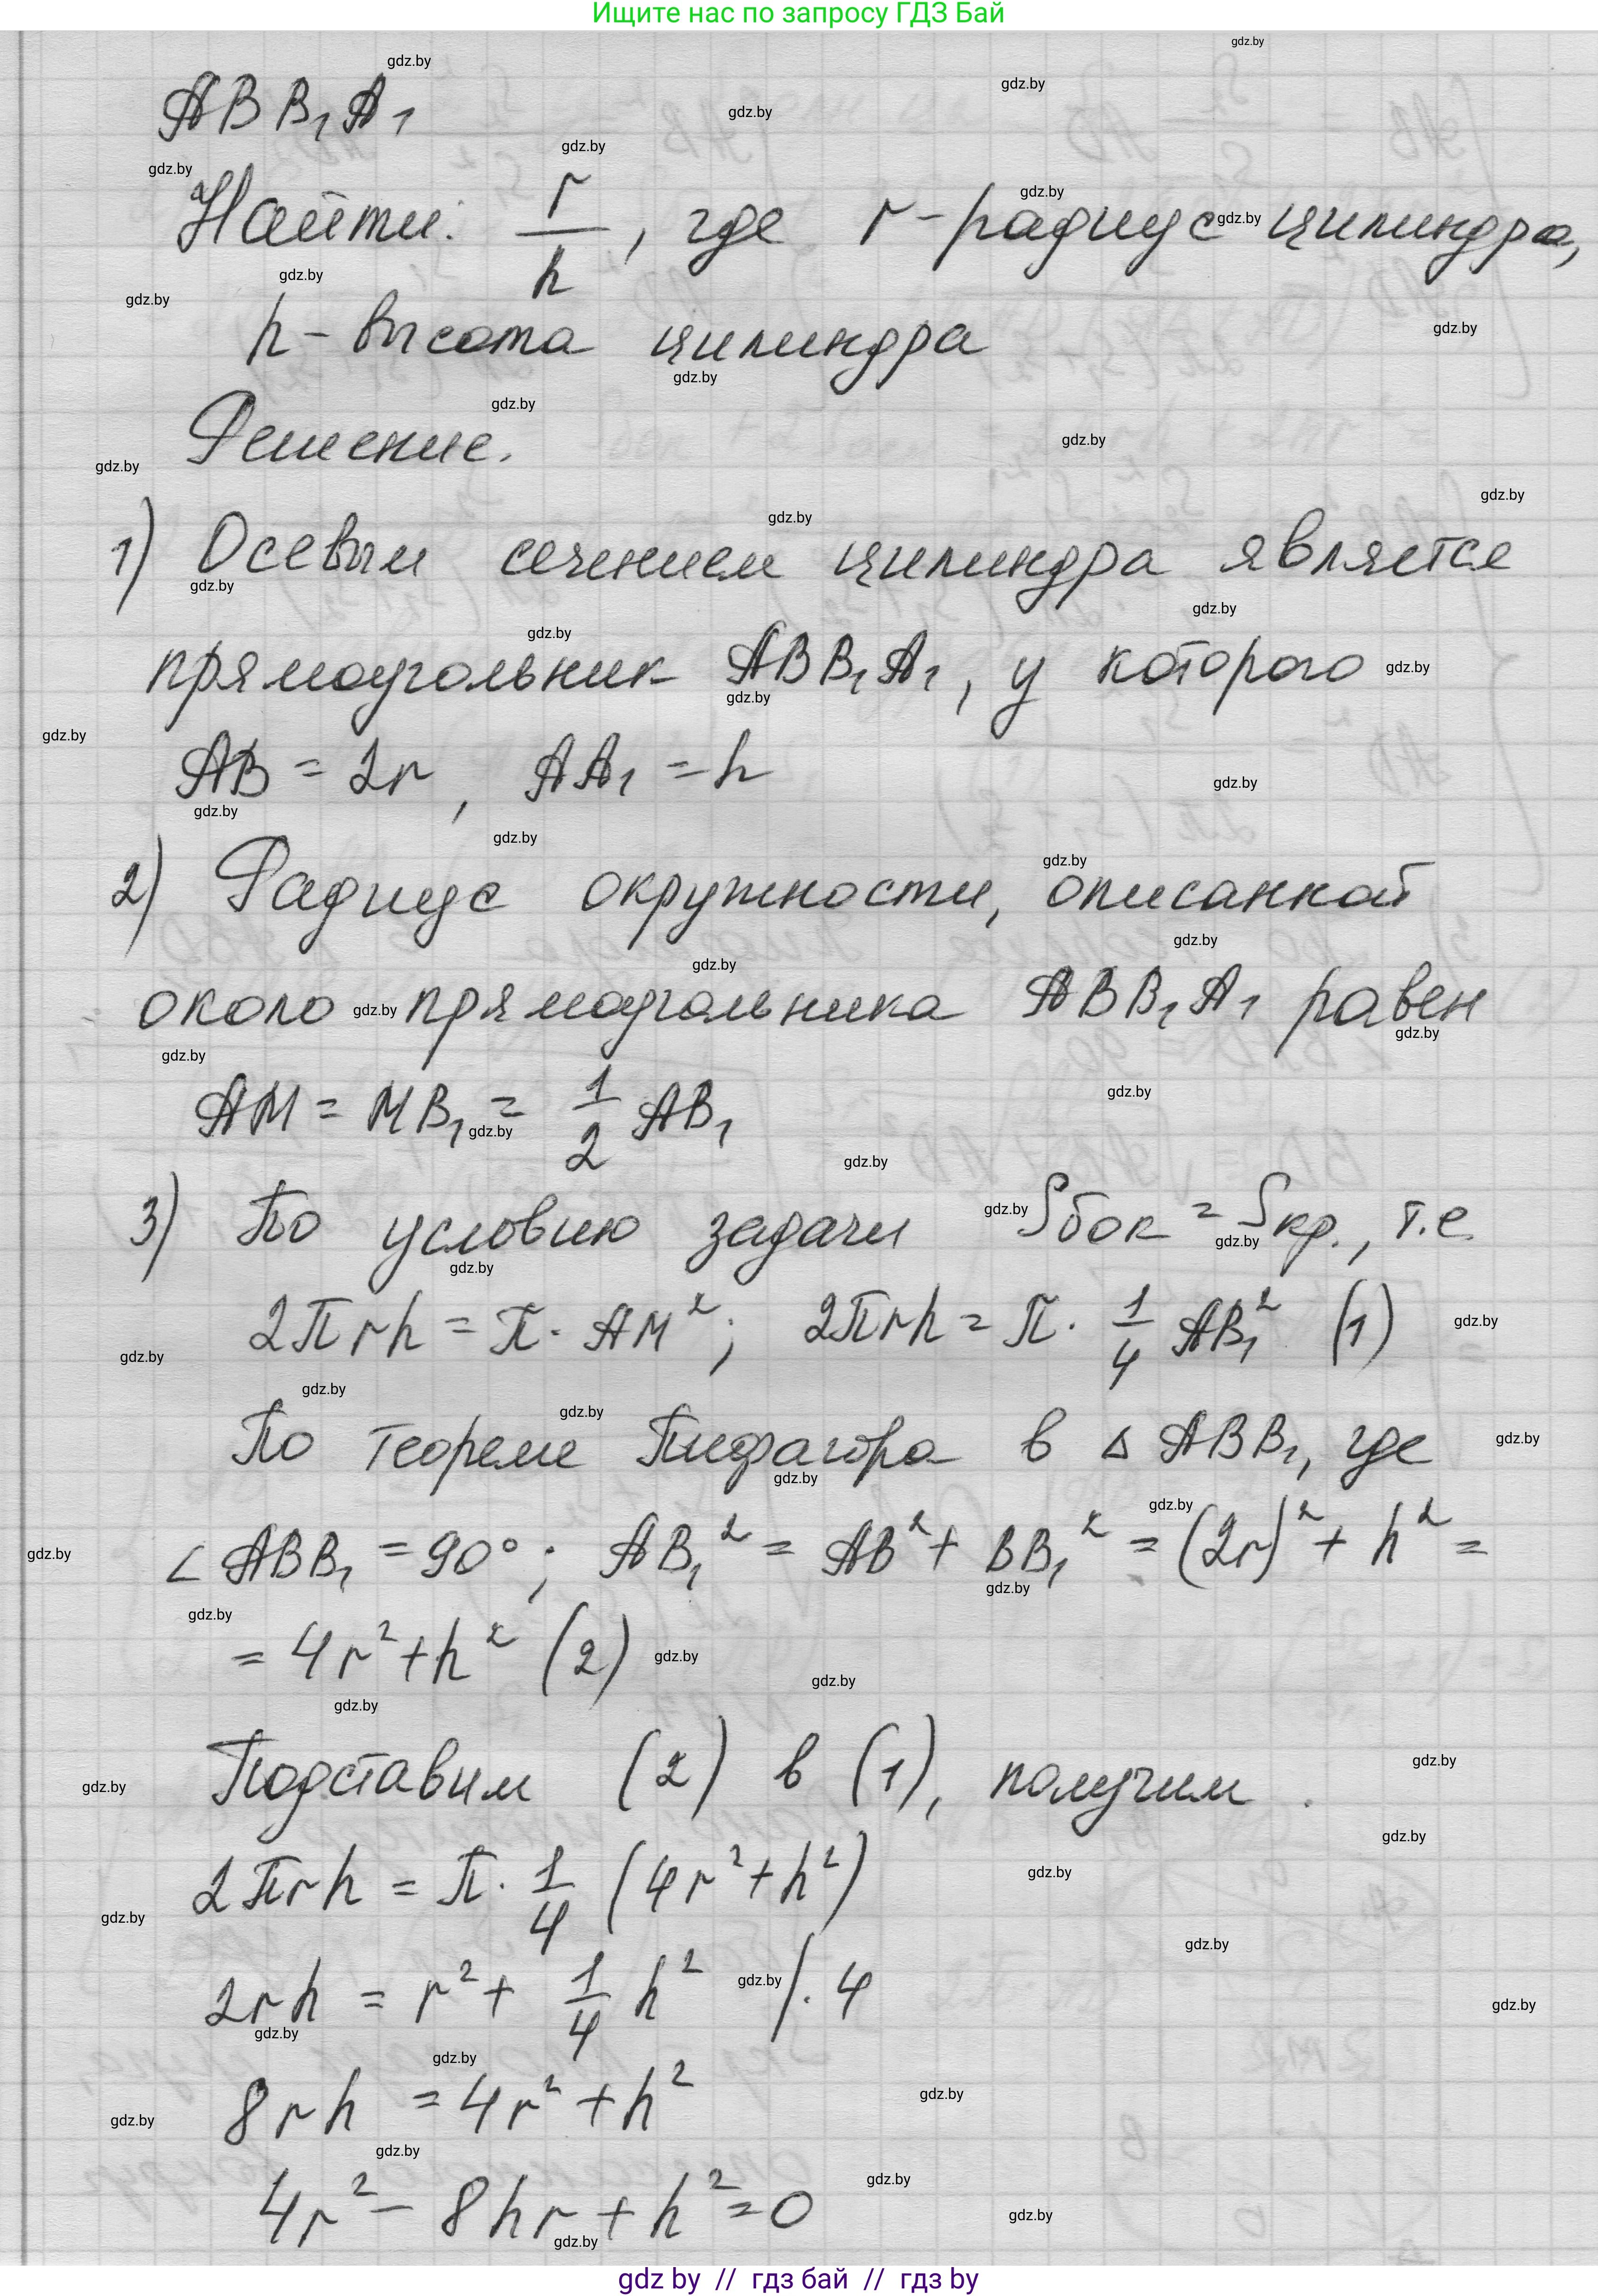 Ищите нас по запросу ГДЗ Бай
ABB₁A₁
Найти: r/h, где r-радиус цилиндра,
h-высота цилиндра
Решение.
1) Осевым сечением цилиндра является
прямоугольник ABB₁A₁, у которого
AB = 2r, AA₁ = h
2) Радиус окружности, описанной
около прямоугольника ABB₁A₁ равен
AM = MB₁ = 1/2 AB₁
3) По условию задачи Sбок = Sкр., т.е.
2πrh = π · AM²; 2πrh = π · 1/4 AB₁² (1)
По теореме Пифагора в △ ABB₁, где
∠ ABB₁ = 90°; AB₁² = AB² + BB₁² = (2r)² + h² =
= 4r² + h² (2)
Подставим (2) в (1), получим
2πrh = π · 1/4 (4r² + h²)
2rh = r² + 1/4 h² /· 4
8rh = 4r² + h²
4r² - 8hr + h² = 0
gdz by // гдз бай // гдз by